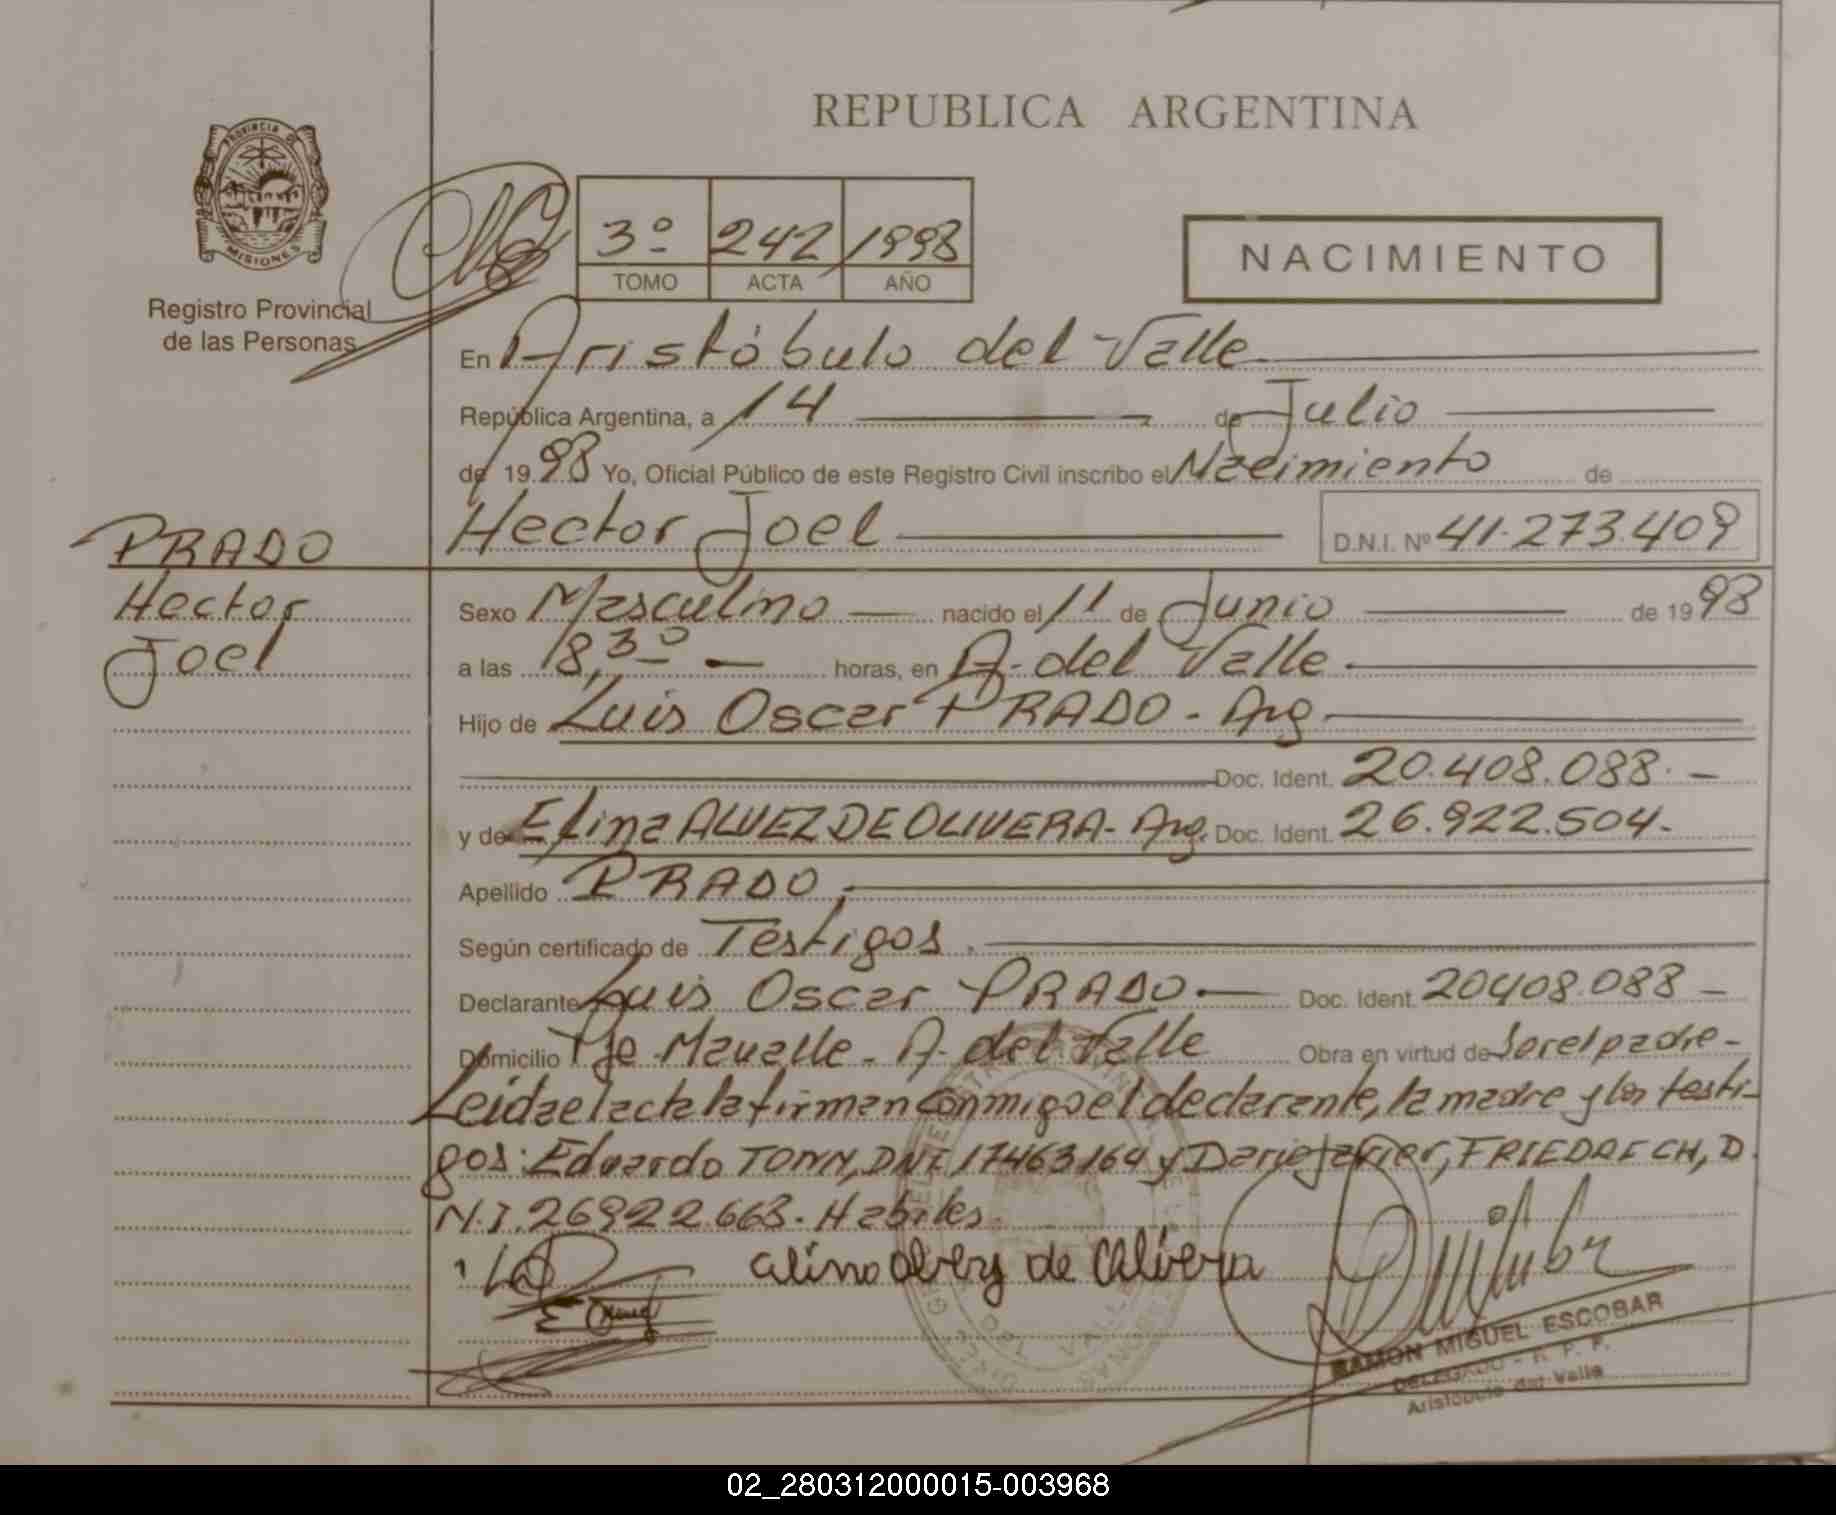 REPUBLICA ARGENTINA
PROVINCIA DE
MISIONES
Registro Provincial
de las Personas
3º 242 1998
TOMO ACTA AÑO
NACIMIENTO
En Aristóbulo del Valle
República Argentina, a 14 de Julio
de 19 98 Yo, Oficial Público de este Registro Civil inscribo el Nacimiento de
Hector Joel D.N.I. Nº 41.273.409
PRADO
Hector
Joel
Sexo Masculino nacido el 11 de Junio de 19 98
a las 18,30 horas, en A. del Valle
Hijo de Luis Oscar PRADO - Arg.
Doc. Ident. 20.408.088.-
y de Elina ALVEZ DE OLIVERA - Arg. Doc. Ident. 26.922.504.-
Apellido PRADO
Según certificado de Testigos.
Declarante Luis Oscar PRADO Doc. Ident. 20408.088 -
Domicilio Pje. - A. del Valle Obra en virtud de Ser el padre -
Leida el acta la firman conmigo el declarante, la madre y los testi-
gos: Eduardo TONN, DNI 17463164 y Dario Javier, FRIEDRECH, D.
N.I. 26922.663. Habiles.
Elina Alvez de Olivera
RAMON MIGUEL ESCOBAR
DELEGADO - R. P. P.
Aristóbulo del Valle
02_280312000015-003968